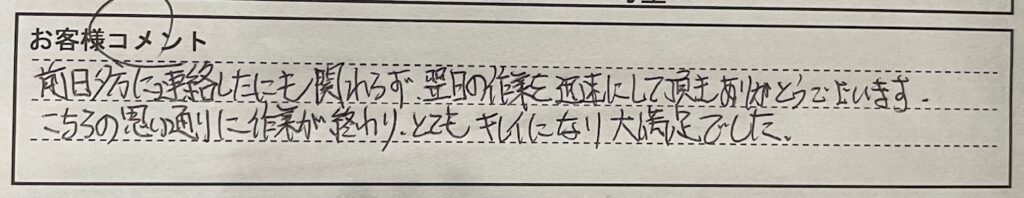 お客様コメント
前日夕方に連絡したにも関わらず翌日の作業を迅速にして頂きありがとうございます。
こちらの思い通りに作業が終わり、とてもキレイになり大満足でした。